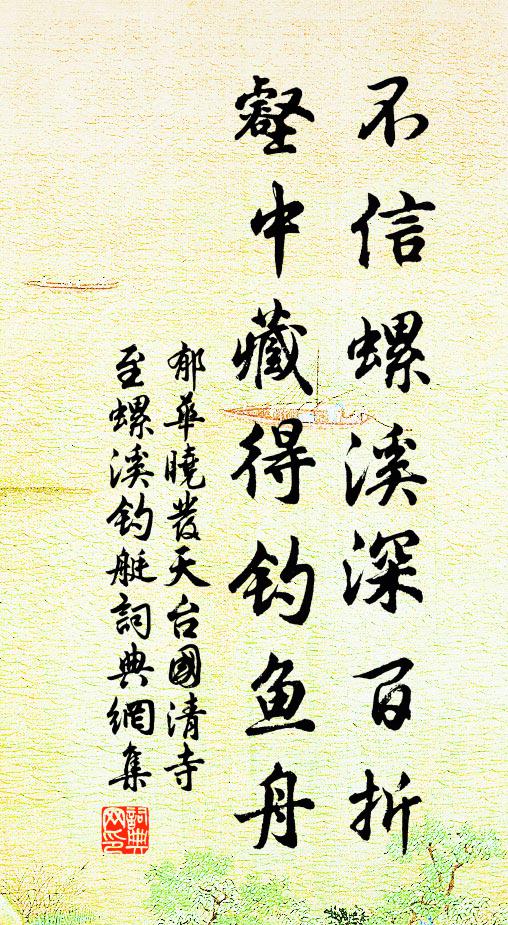 不信螺溪深百折
壑中藏得钓鱼舟
郁華曉發天台國清寺
至螺溪钓艇詞典網集
詞典网印